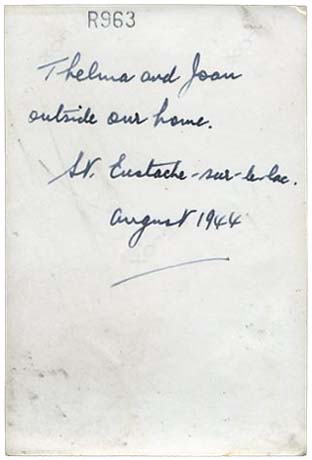 R963
Thelma and Joan
outside our home.
St. Eustache-sur-le-lac.
August 1944